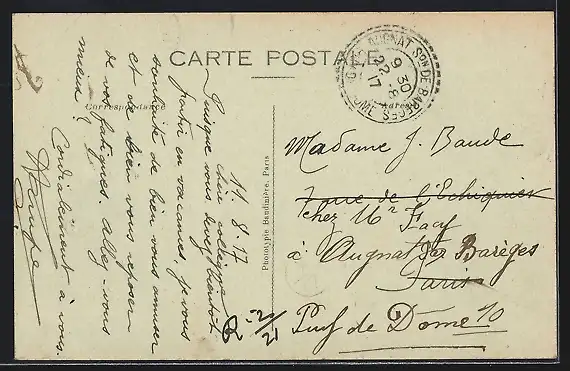 CARTE POSTALE
Correspondance
Adresse
AUGNAT SON DE BARGES
9 30
22 -8
17
P. DE DOME
11. 8. 17
cher collègue
Puisque vous devez bientôt
partir en vacances, je vous
souhaite de bien vous amuser
et de bien vous reposer
de vos fatigues. Allez-vous
mieux ?
Cordialement à vous.
Phototypie Baudinière, Paris
Madame J. Baude
rue de l'Echiquier
chez Mr Facy
à Augnat par Barèges
Paris
Puy de Dôme 10